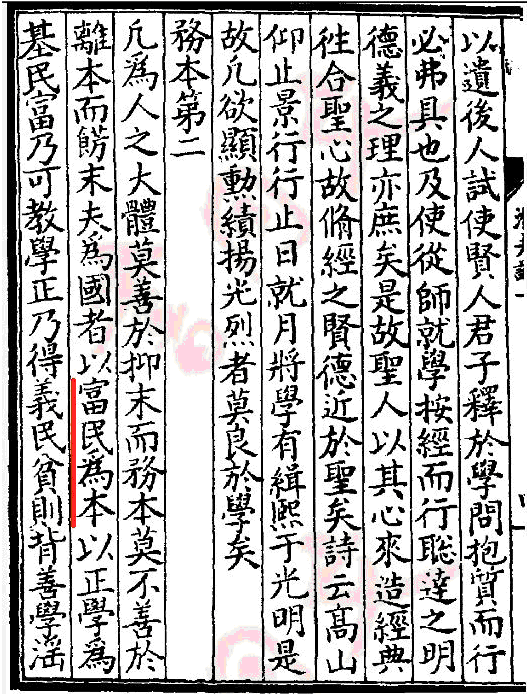 以遺後人試使賢人君子釋於學問抱質而行
必弗具也及使從師就學按經而行聡達之明
德義之理亦庶矣是故聖人以其心來造經典
徃合聖心故脩經之賢德近於聖矣詩云髙山
仰止景行行止日就月將學有緝熙于光明是
故凡欲顯勲績揚光烈者莫良於學矣
務本第二
凡爲人之大體莫善於抑末而務本莫不善於
離本而餝末夫爲國者以富民爲本以正學爲
基民富乃可教學正乃得義民貧則背善學滛